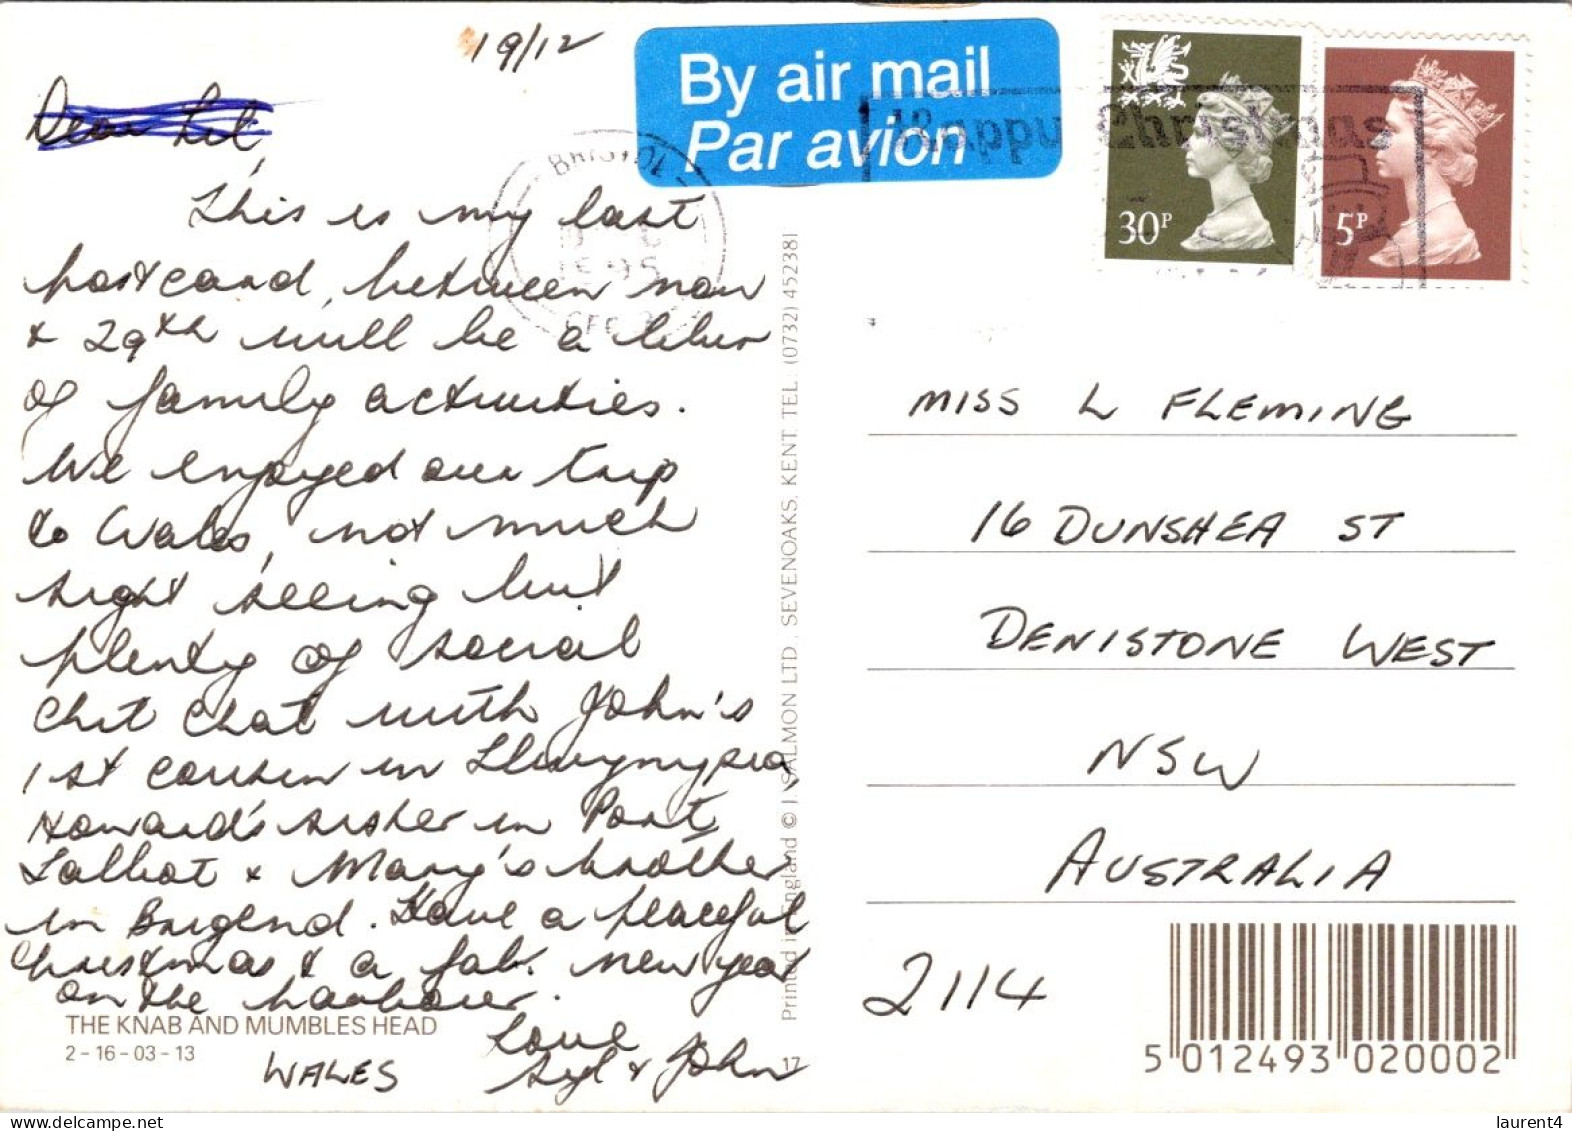 19/12
Dear Lil,
This is my last
postcard, between now
& 29th will be a blur
of family activities.
We enjoyed our trip
to Wales, not much
sight seeing but
plenty of social
chit chat with John's
1st cousin in Llwynypia
Howard's sister in Port
Talbot & Mary's brother
in Brigend. Have a peaceful
Christmas & a fab. new year
on the harbour.
Love
Syl & John
THE KNAB AND MUMBLES HEAD
2-16-03-13
WALES
By air mail
Par avion
BRISTOL
Happy Christmas
30P
5P
Printed in England © J. SALMON LTD., SEVENOAKS, KENT. TEL. (0732) 452381
17
MISS L FLEMING
16 DUNSHEA ST
DENISTONE WEST
NSW
AUSTRALIA
2114
5 012493 020002
laurent4